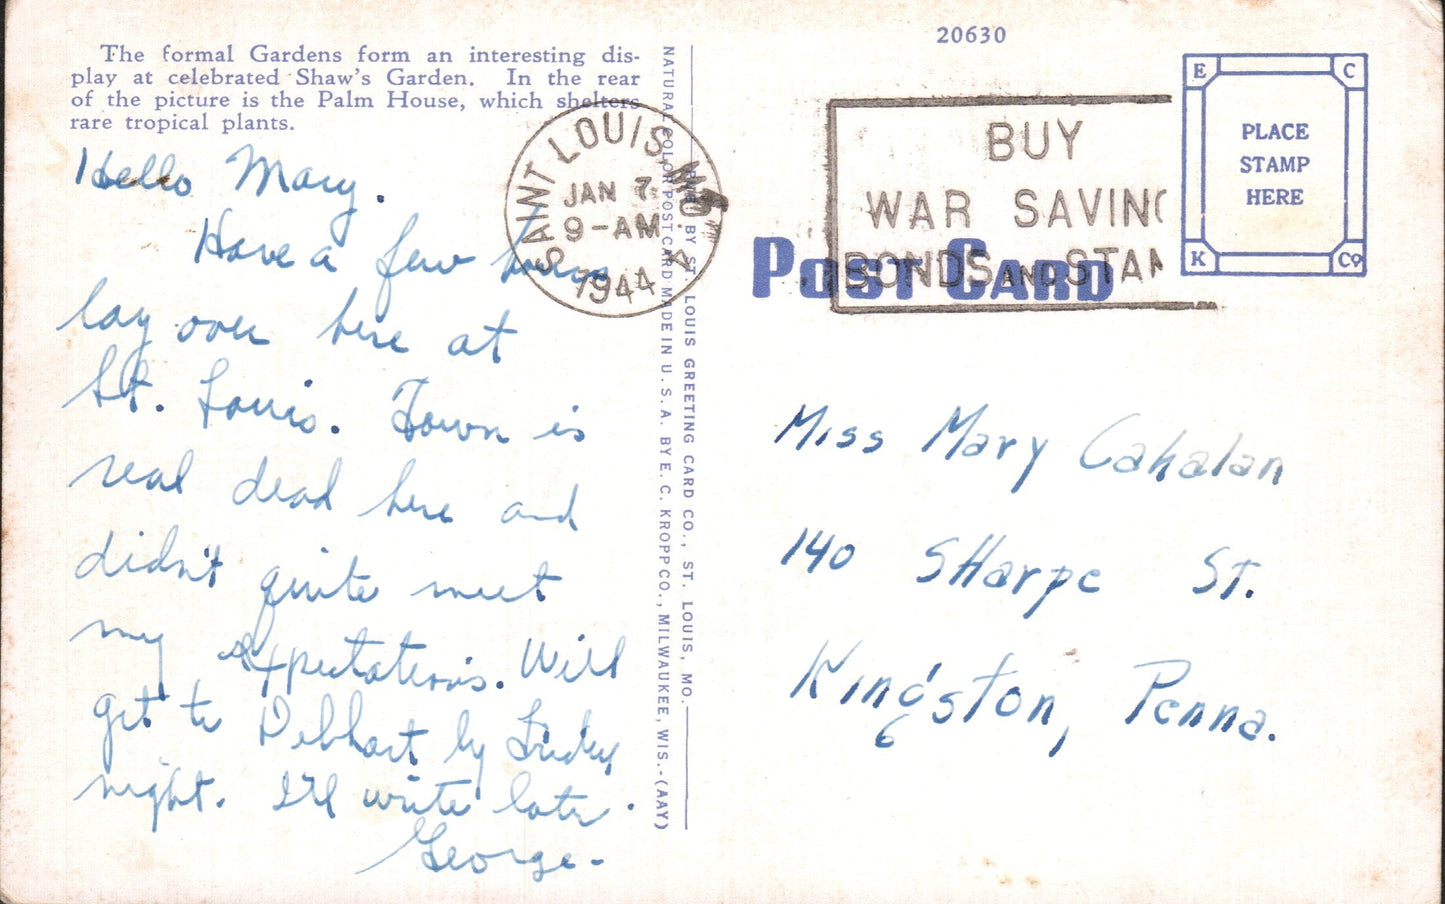 The formal Gardens form an interesting dis-
play at celebrated Shaw's Garden. In the rear
of the picture is the Palm House, which shelters
rare tropical plants.
Hello Mary.
Have a few hours
lay over here at
St. Louis. Town is
real dead here and
didn't quite meet
my expectations. Will
get to by Friday
night. I'll write later.
George-
SAINT LOUIS, MO.
JAN 7
9-AM
1944
PUB. BY ST. LOUIS GREETING CARD CO., ST. LOUIS, MO.
NATURAL COLOR POST CARD MADE IN U. S. A. BY E. C. KROPP CO., MILWAUKEE, WIS.-(AAY)
20630
BUY
WAR SAVING
BONDS AND STAM
POST CARD
E C
PLACE
STAMP
HERE
K Co
Miss Mary Cahalan
140 SHarpe ST.
Kingston, Penna.
6